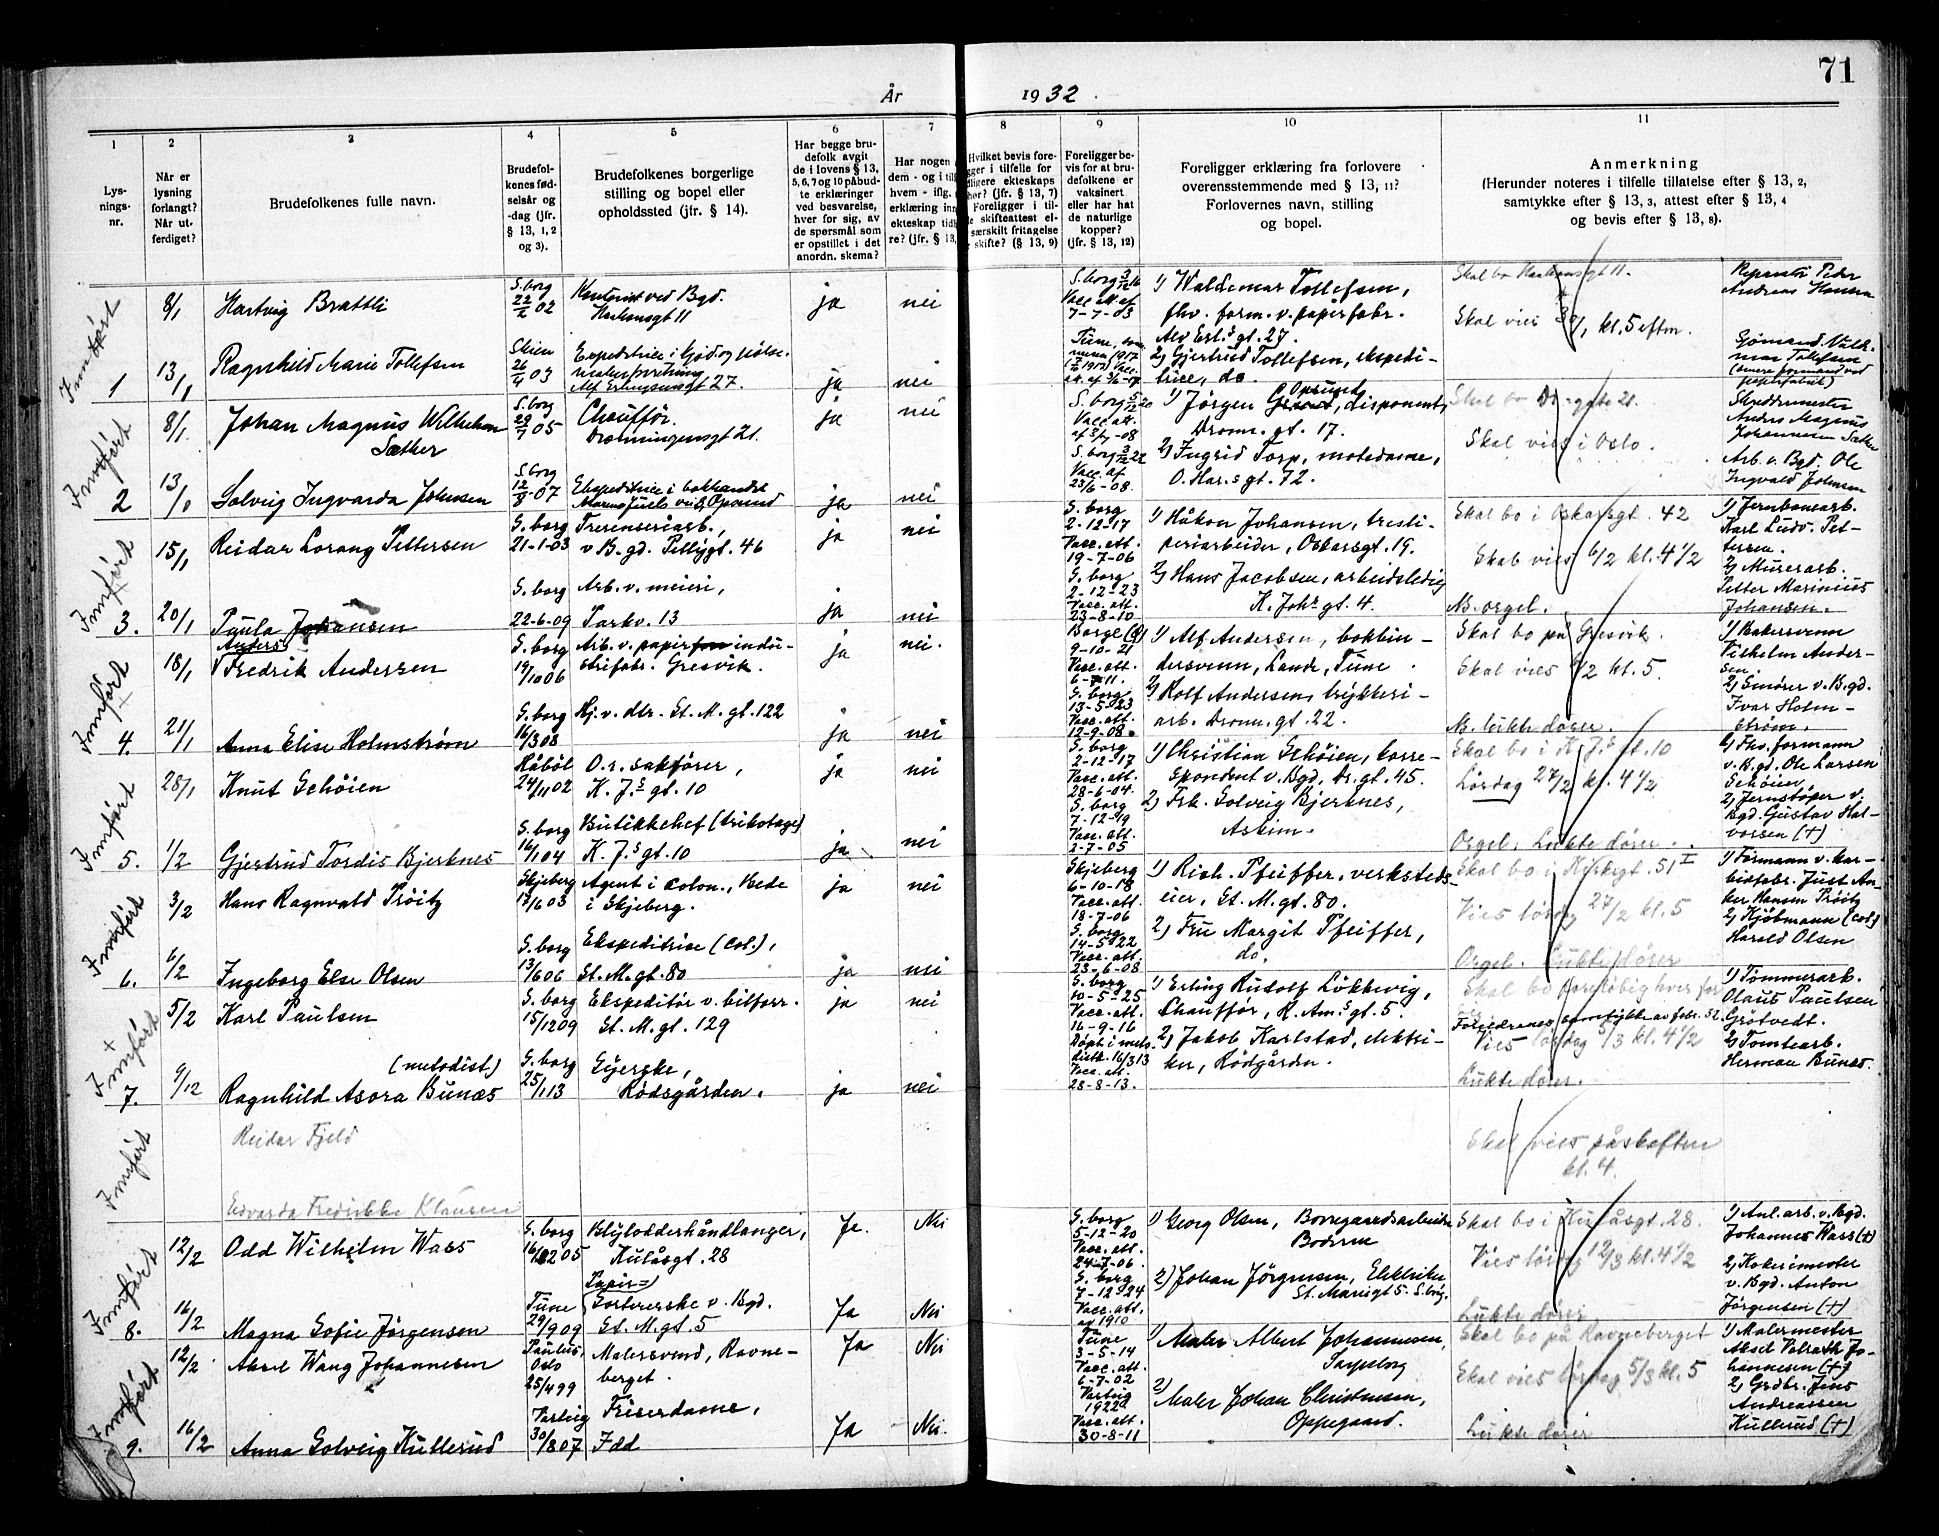 71
År 1932
1 2 3 4 5 6 7 8 9 10 11
Lys-
nings-
nr.
Når er
lysning
forlangt?
Når ut-
ferdiget?
Brudefolkenes fulle navn.
Brudefol-
kenes fød-
selsår og
-dag (jfr.
§ 13, 1, 2
og 3).
Brudefolkenes borgerlige
stilling og bopel eller
opholdssted (jfr. § 14).
Har begge bru-
defolk avgit
de i lovens § 13,
5, 6, 7 og 10 påbud-
te erklæringer
ved besvarelse,
hver for sig, av
de spørsmål som
er opstillet i det
anordn. skema?
Har nogen a
dem - og i tilf
hvem - iflg. e
erklæring inn
ekteskap tidl
re? (jfr. § 13,
Hvilket bevis fore-
gger i tilfelle for
dligere ekteskaps
hør? (jfr. § 13, 7)
Foreligger i til-
le skifteattest el-
særskilt fritagelse
skifte? (§ 13, 9)
Foreligger be-
vis for at bru-
defolkene er
vaksinert
eller har hat
de naturlige
kopper?
(jfr. § 13, 12)
Foreligger erklæring fra forlovere
overensstemmende med § 13, 11?
Forlovernes navn, stilling
og bopel.
Anmerkning
(Herunder noteres i tilfelle tillatelse efter § 13, 2,
samtykke efter § 13, 3, attest efter § 13, 4
og bevis efter § 13, 8).
Innført
1
8/1
Hartvig Brattli
S.borg
22/2 02
Kontorist ved Bgd.
Haakonsgt 11
ja
nei
Vacc att af
7-7-03
1) Waldemar Tollefsen,
fhv. form. v. papirfabr.
Alv Erl.s gt. 27.
Skal bo Haakonsgt 11.
Skal vies 30/1 kl. 5 eftm.
Peder
Andreas Hansen
13/1
Ragnhild Marie Tollefsen
Skien
26/4 03
Alf Erlingsensgt 27.
ja
nei
2) Gjertrud Tollefsen, ekspedi-
trice, do.
Innført
2
8/1
Johan Magnus Wilhelmsen
Sæther
S.borg
29/7 05
Chauffør.
Dronningensgt 21.
ja
nei
S.borg
Vacc att.
1) Jørgen Opsund, disponent,
Dronn. gt. 17.
Skal vies i Oslo.
Anders Magnus
Johannesen Sæther
13/1
Solveig Ingvarda Johnsen
S.borg
12/8-07
Ekspeditrice i bokhandel
ja
nei
S.borg
Vacc. af
23/6-08.
2) Ingrid Torp, motedame,
O. Har.s gt. 72.
Arb. v. Bgd. Ole
Ingvald Johnsen
Innført
3.
15/1
Reidar Lorang Pettersen
S.borg
21-1-03
v B.gd. Pellygt. 46
ja
nei
S.borg
2-12-17
Vacc. att.
19-7-06
1) Håkon Johansen, tresli-
periarbeider, Oskarsgt. 19.
Skal bo i Oskarsgt. 42
Skal vies 6/2 kl. 4 1/2
1) Jernbanearb.
Karl Ludv. Pet-
tersen.
20/1
Paula Johansen
S.borg
22-6-09
Arb. v. meieri,
Parkv. 13
ja
nei
S.borg
2-12-23
Vacc. att.
23-8-10
2) Hans Jacobsen, arbeidsledig
K. Joh.s gt. 4.
Nb. orgel.
2) Murerarb.
Petter Marinius
Johansen.
Innført
4.
18/1
Anders
Fredrik Andersen
S.borg
19/10 06
Arb. v. papir indu-
strifabr. Gresvik.
ja
nei.
Borge
9-10-21
Vacc. att.
6-7-11.
1) Alf Andersen, bokbin-
dersvenn, Lande, Tune.
Skal bo på Gresvik.
Skal vies 6/2 kl. 5.
1) Bakersvenn
Vilhelm Ander-
sen.
21/1
Anna Elise Holmstrøm
S.borg
16/3 08
Hj. v. dtr. St. M. gt. 122
ja
nei
S.borg
13-5-23
Vacc. att.
12-9-08.
2) Rolf Andersen, trykkeri-
arb. Dronn. gt. 22.
Nb. lukte dører.
2) Smører v. B.gd.
Ivar Holm-
strøm.
Innført
5.
28/1
Knut Schøien
Håbøl
24/11 02
O.r. sakfører,
K. J.s gt. 10
ja
nei
S.borg
2-12-17
Vacc. att.
28-6-04.
1) Christian Schøien, korre-
spondent v. Bgd, Dr. gt. 45.
Skal bo i K. J.s gt. 10
Lørdag 27/2 kl. 4 1/2
1) Fhv. formann
v. B.gd. Ole Larsen
Schøien
1/2
Gjertrud Tordis Bjerknes
S.borg
16/1 04
Butikkchef (trikotage)
K. J.s gt. 10
ja
nei
S.borg
7-12-19
Vacc. att.
2-7-05
2) Frk. Solveig Bjerknes,
Askim.
Orgel. Lukte dører.
2) Jernstøper v.
Bgd. Gustav Hal-
vorsen (+)
Innført
6.
3/2
Hans Ragnvald Prøitz
Skjeberg
Agent i colon., Bede
i Skjeberg.
ja
nei
Skjeberg
6-10-18
Vacc. att.
18-7-06
1) Rich. Pfeiffer, verksteds-
eier, St. M. gt. 80.
Skal bo i Kirkegt. 51 I
Vies lørdag 27/2 kl. 5
1) Formann v. kar-
bidfabr. Just An-
ker Hansen Prøitz
6/2
Ingeborg Else Olsen
S.borg
13/6 06
Ekspeditrise (col.),
St. M. gt. 80
ja
nei
S.borg
14-5-22
Vacc. att.
23-6-08
2) Fru Margit Pfeiffer,
do.
Orgel. Lukte dører
2) Kjøbmann (col.)
Harald Olsen
Innført
7.
5/2
Karl Paulsen
S.borg
15/12 09
Ekspeditør v. bilforr.
St. M. gt. 129
ja
nei
S.borg
10-5-25
Vacc. att.
16-9-16
1) Erling Rudolf Løkkevig,
Chauffør, R. Am.s gt. 5.
Skal bo foreløbig hver for
Foreldrenes samtykke av febr. 32.
Vies lørdag 5/3 kl. 4 1/2
1) Tømmerarb.
Olaus Paulsen
Grøtvedt.
9/12
(metodist)
Ragnhild Asora Bunæs
S.borg
25/1 13
Syerske,
Rødsgården.
ja
nei
Døpt i meto.
disk. 16/3 13
Vacc. att.
28-8-13.
2) Jakob Karlstad, elektri-
ker, Rødgården.
Lukte dører.
2) Tomtearb.
Herman Bunæs.
Innført
Reidar Fjeld
Skal vies påskeaften
kl. 4.
Edvarda Fredrikke Klausen
Innført
8.
12/2
Odd Wilhelm Wass
S.borg
Blylodderhåndlanger,
Kulåsgt. 28
Ja.
Nei
S.borg
5-12-20
Vacc. att.
24-7-06.
1) Georg Olsen, Borregaardsarbeider
Skal bo i Kulåsgt. 28.
Vies lørdag 12/3 kl. 4 1/2
1) Anl. arb. v. Bgd.
Johannes Wass (+)
16/2
Magna Sofie Jørgensen
Tune
29/9 09
Papir-
Sorterske v. Bgd.
St. M. gt. 5
Ja
Nei
S.borg
7-12-24
Vacc. att.
av 1910
2) Johan Jørgensen, Elektriker
St. Mariegt 5. S.brg.
Lukte dører
2) Kokerimester
v. Bgd. Anton
Jørgensen (+)
Innført
9.
12/2
Aksel Wang Johannesen
Paulus,
Oslo
25/4 99
Malersvend, Ravne-
berget.
Ja
Nei
Tune
3-5-14
Vacc. att.
6-7-02
1) Maler Albert Johannesen,
Sarpsborg
Skal bo på Ravneberget
Skal vies lørdag 5/3 kl. 5
1) Malermester
Aksel Volrath Jo-
hannesen (+)
16/2
Anna Solveig Kullerud
Varteig
30/8 07
Friserdame,
Fdd
Ja
Nei.
Varteig
1922
Vacc. att.
30-8-11
2) Maler Johan Christensen,
Oppegaard.
Lukte dører
2) Grdbr. Jens
Andreassen
Kullerud (+)